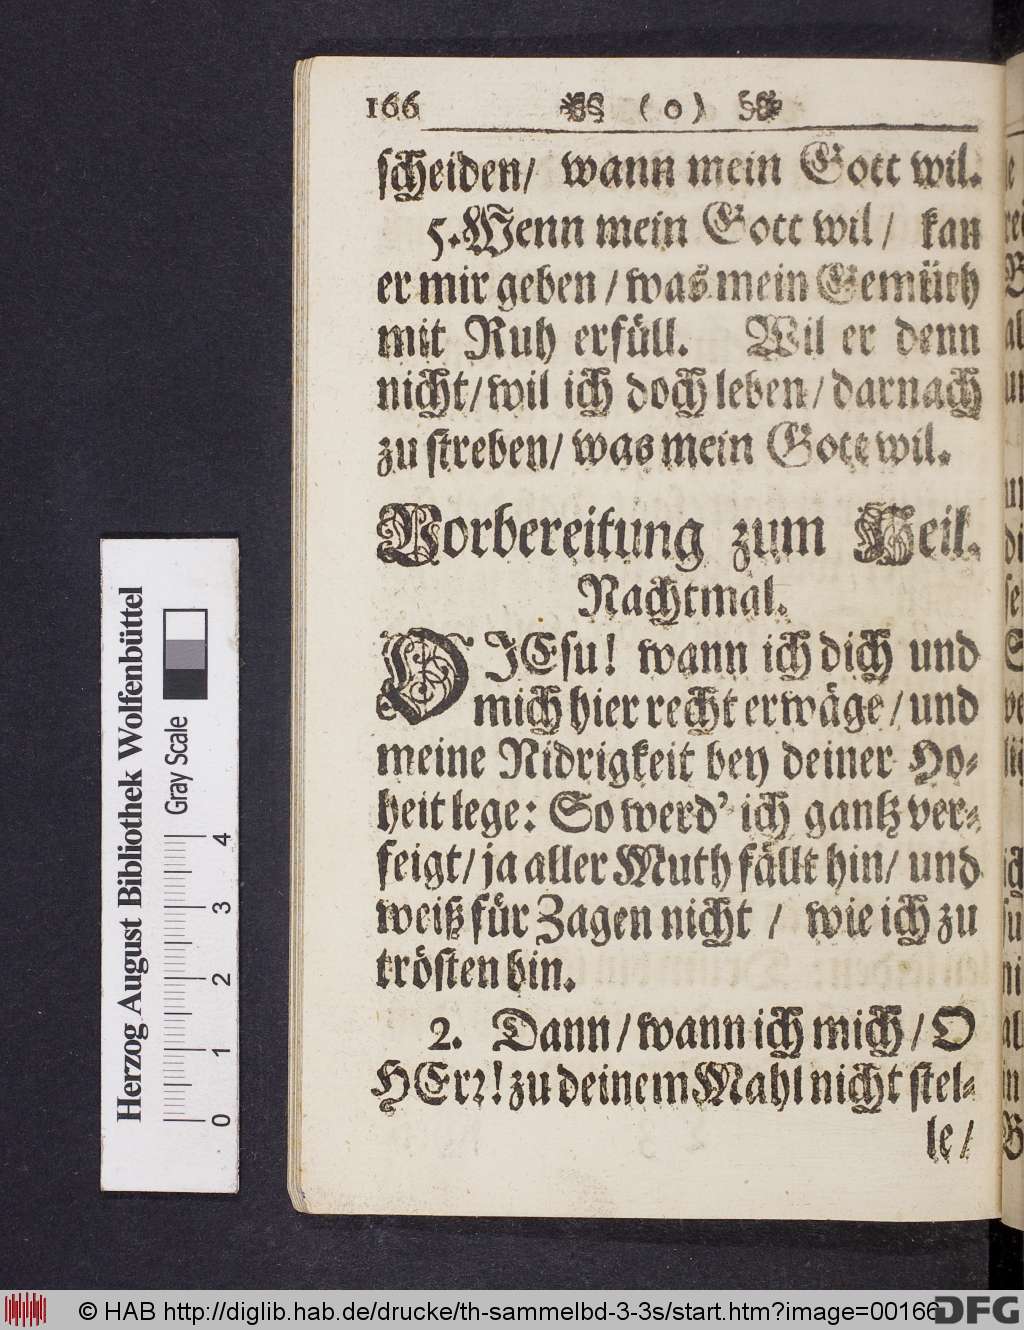 166 ( o )
scheiden/ wann mein Gott wil.
5. Wenn mein Gott wil / kan
er mir geben / was mein Gemüth
mit Ruh erfüll. Wil er denn
nicht/ wil ich doch leben/ darnach
zu streben/ was mein Gott wil.
Vorbereitung zum Heil.
Nachtmal.
O JEsu! wann ich dich und
mich hier recht erwäge / und
meine Nidrigkeit bey deiner Ho-
heit lege: So werd' ich gantz ver-
feigt/ ja aller Muth fällt hin/ und
weiß für Zagen nicht / wie ich zu
trösten bin.
2. Dann / wann ich mich / O
HErr! zu deinem Mahl nicht stel-
le /
Herzog August Bibliothek Wolfenbüttel
Gray Scale
0 1 2 3 4
© HAB http://diglib.hab.de/drucke/th-sammelbd-3-3s/start.htm?image=00166
DFG